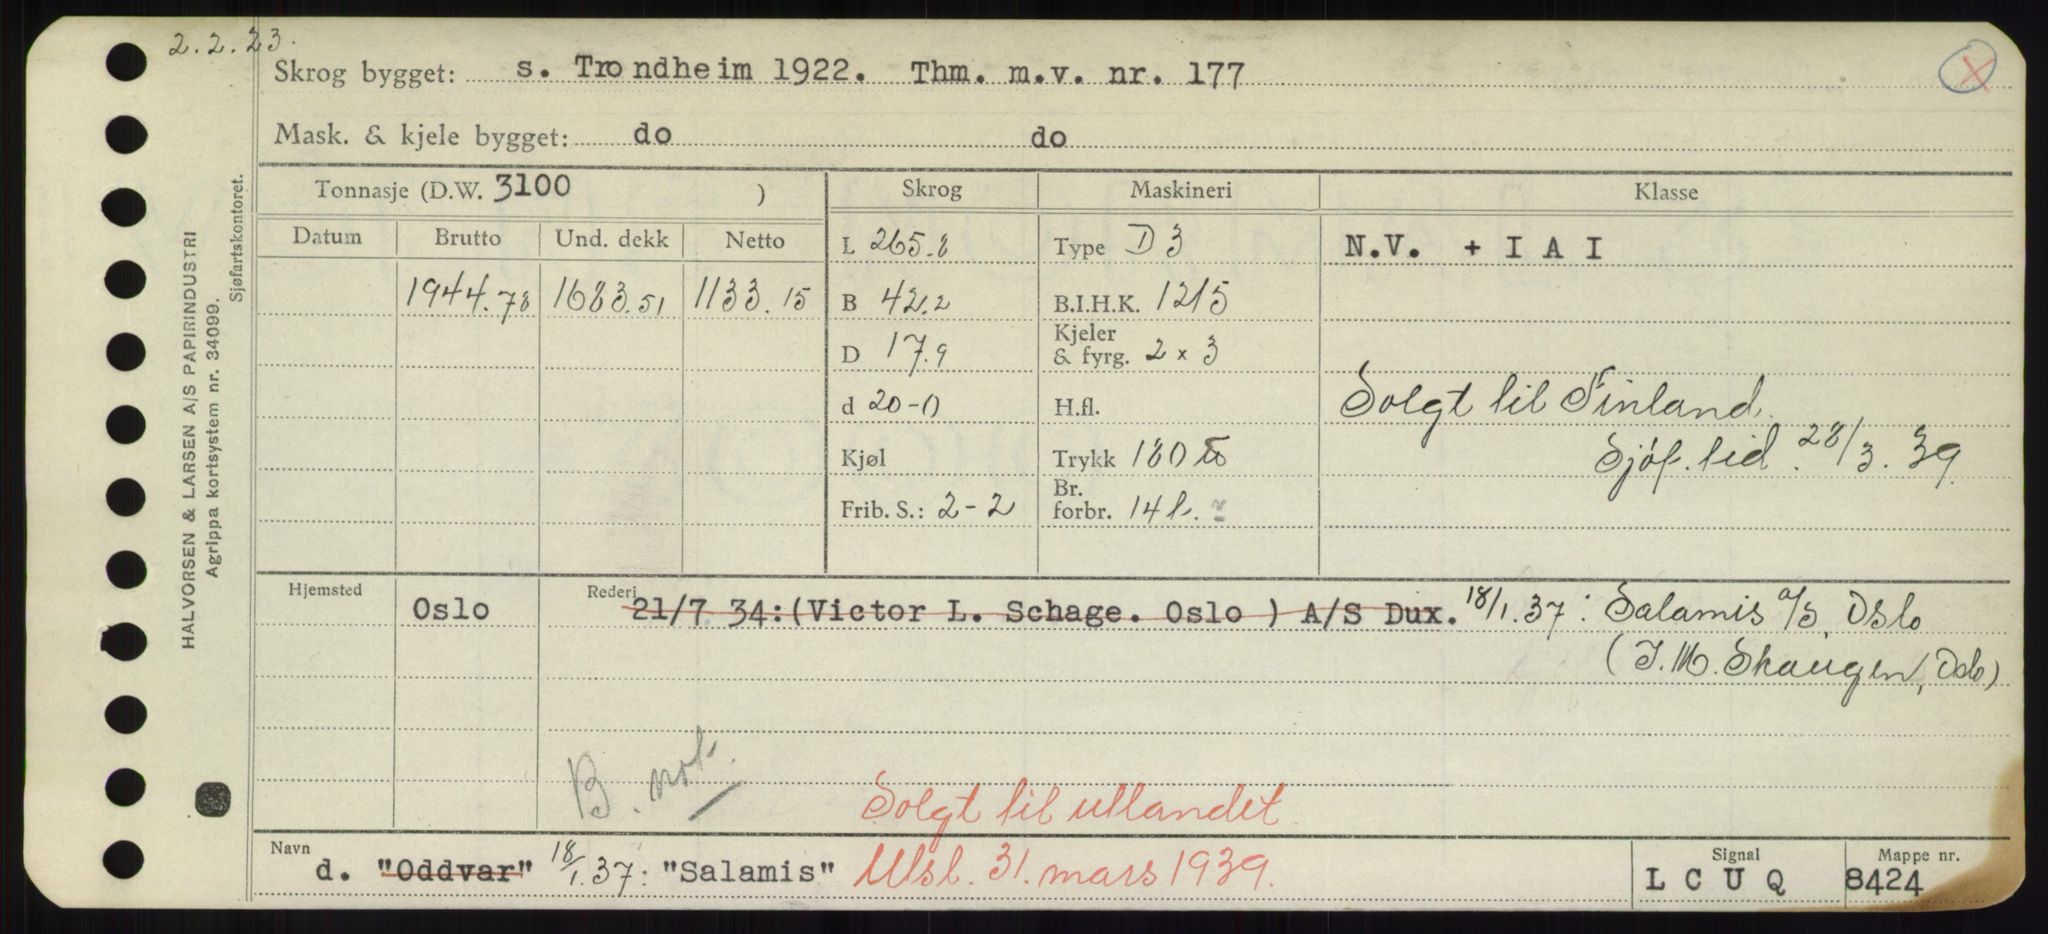 2.2.23.
Skrog bygget: s. Trondheim 1922. Thm. m.v. nr. 177
Mask. & kjele bygget: do do
HALVORSEN & LARSEN A/S PAPIRINDUSTRI
Agrippa kortsystem nr. 34099.
Sjøfartskontoret.
Tonnasje (D.W. 3100 ) Skrog Maskineri Klasse
Datum Brutto Und. dekk Netto
1944.78 1683.51 1133.15
L 265.8
B 42.2
D 17.9
d 20-0
Kjøl
Frib. S.: 2-2
Type D 3
B.I.H.K. 1215
Kjeler
& fyrg. 2 x 3
H.fl.
Trykk 180
Br.
forbr. 14 t.
N.V. + I A I
Solgt til Finland.
Sjøf. tid. 28/3. 39
Hjemsted Oslo
Rederi 21/7 34:(Victor L. Schage. Oslo ) A/S Dux. 18/1.37: Salamis a/s, Oslo
(I. M. Skaugen, Oslo)
B. not.
Solgt til utlandet.
Navn d. "Oddvar" 18/1.37: "Salamis" Utsl. 31. mars 1939.
Signal L C U Q
Mappe nr. 8424